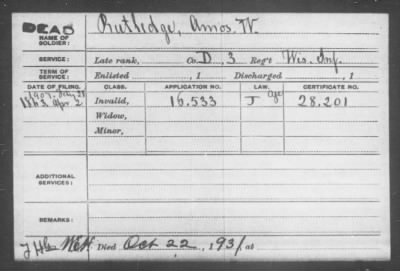 DEAD
NAME OF SOLDIER: Rutledge, Amos W.
SERVICE: Late rank, Co. D, 3 Reg't Wis. Inf.
TERM OF SERVICE: Enlisted , 1 Discharged , 1
DATE OF FILING. CLASS. APPLICATION NO. LAW. CERTIFICATE NO.
1907
1863 Apr 2 Invalid, 16.533 J Age 28.201
Widow,
Minor,
ADDITIONAL SERVICES:
REMARKS:
Died Oct 22, 1931 at